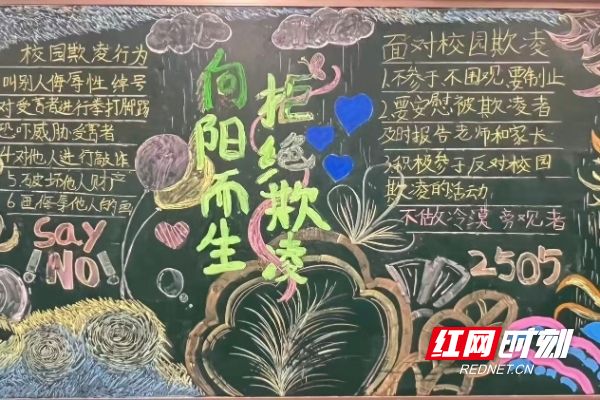 校园欺凌行为
叫别人侮辱性绰号
对受害者进行拳打脚踢
恐吓威胁受害者
针对他人进行敲诈
5破坏他人财产
6画侮辱他人的画
Say
NO!
向阳而生
拒绝欺凌
面对校园欺凌
1.不参于不围观,要制止
2.要安慰被欺凌者
及时报告老师和家长
3.积极参于反对校园
欺凌的活动
不做冷漠旁观者
2505
红网时刻
REDNET.CN